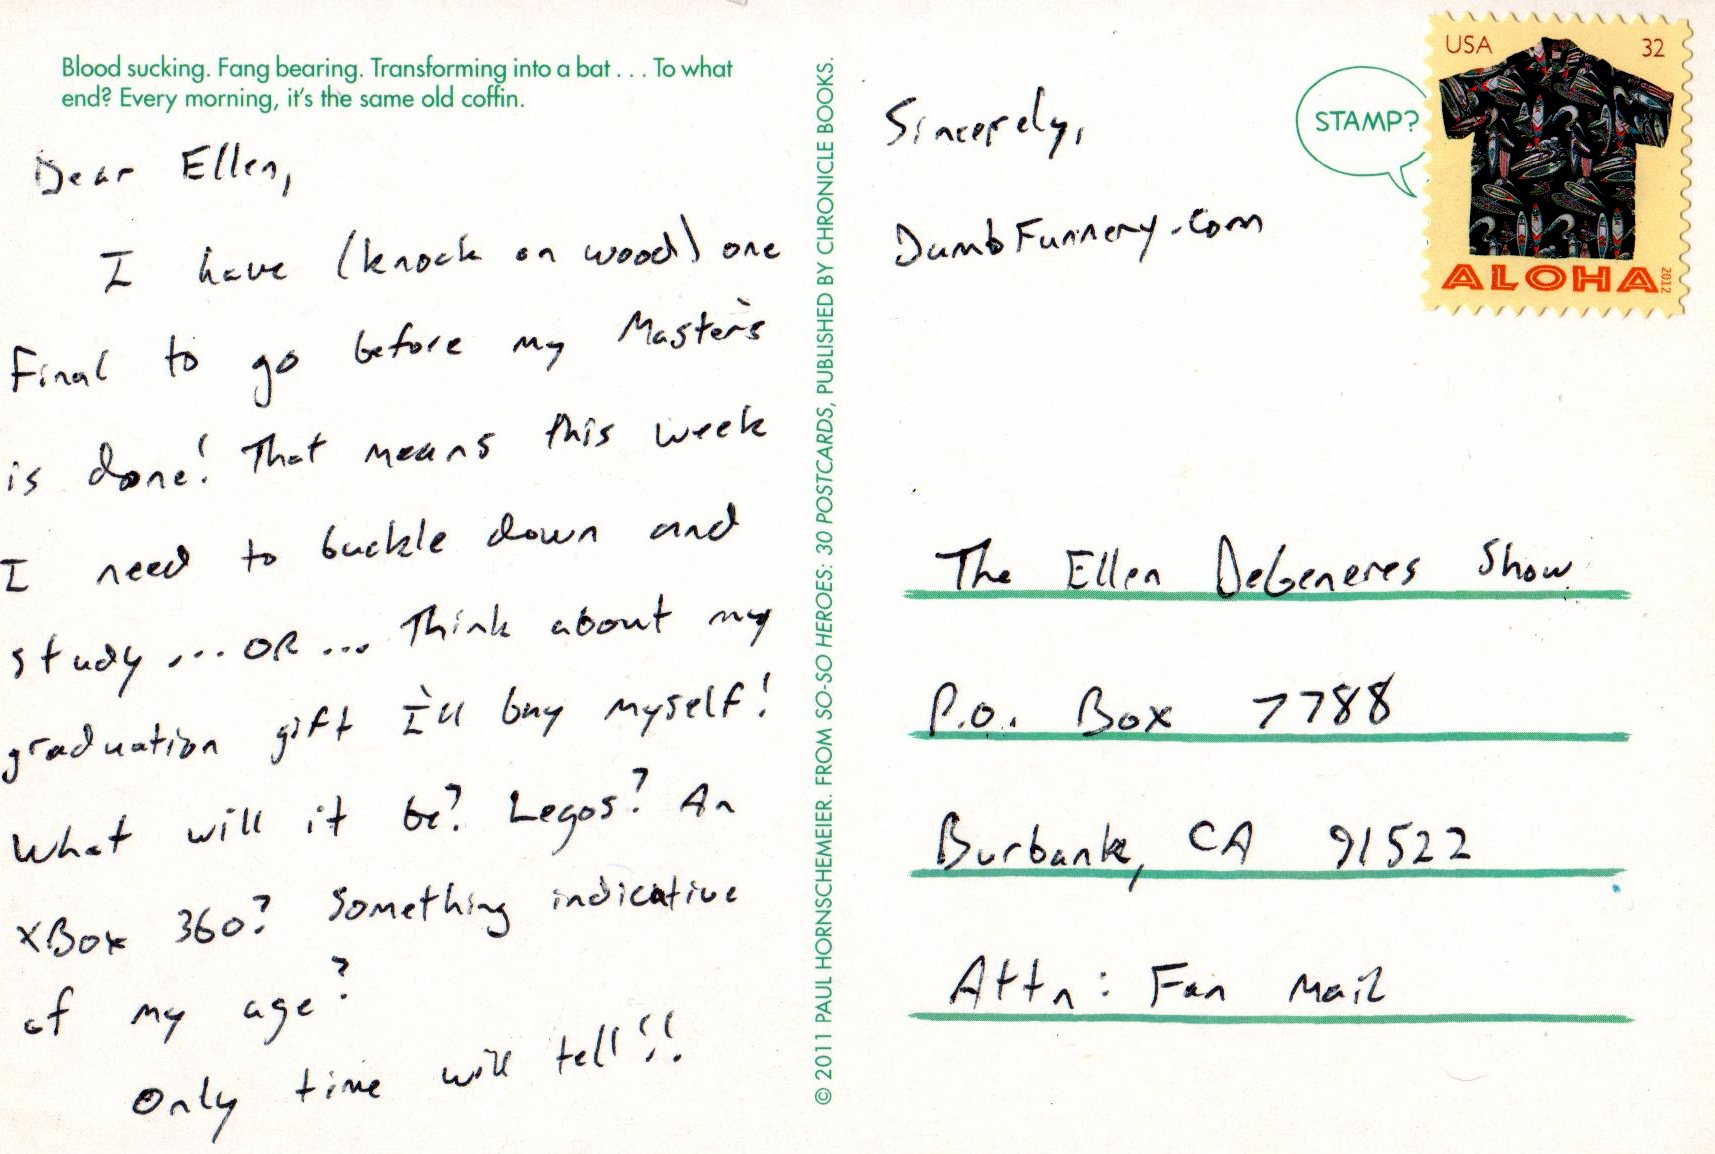 Blood sucking. Fang bearing. Transforming into a bat . . . To what
end? Every morning, it's the same old coffin.
Dear Ellen,
I have (knock on wood) one
Final to go before my Master's
is done! That means this week
I need to buckle down and
study ... OR ... Think about my
graduation gift I'll buy myself!
What will it be? Legos? An
XBox 360? Something indicative
of my age?
Only time will tell!!
© 2011 PAUL HORNSCHEMEIER. FROM SO-SO HEROES: 30 POSTCARDS, PUBLISHED BY CHRONICLE BOOKS.
Sincerely,
DumbFunnery.com
STAMP?
USA 32
ALOHA 2012
The Ellen DeGeneres Show
P.O. Box 7788
Burbank, CA 91522
Attn: Fan Mail